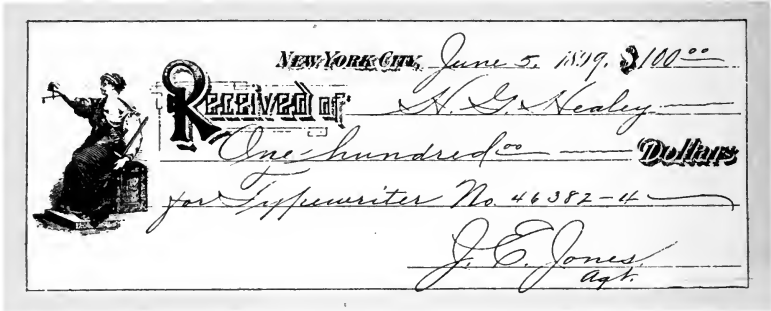 NEW YORK CITY, June 5, 1899. $100 00
Received of H. G. Healey
One hundred 00 Dollars
for Typewriter No. 46382-4
J. E. Jones,
Agt.